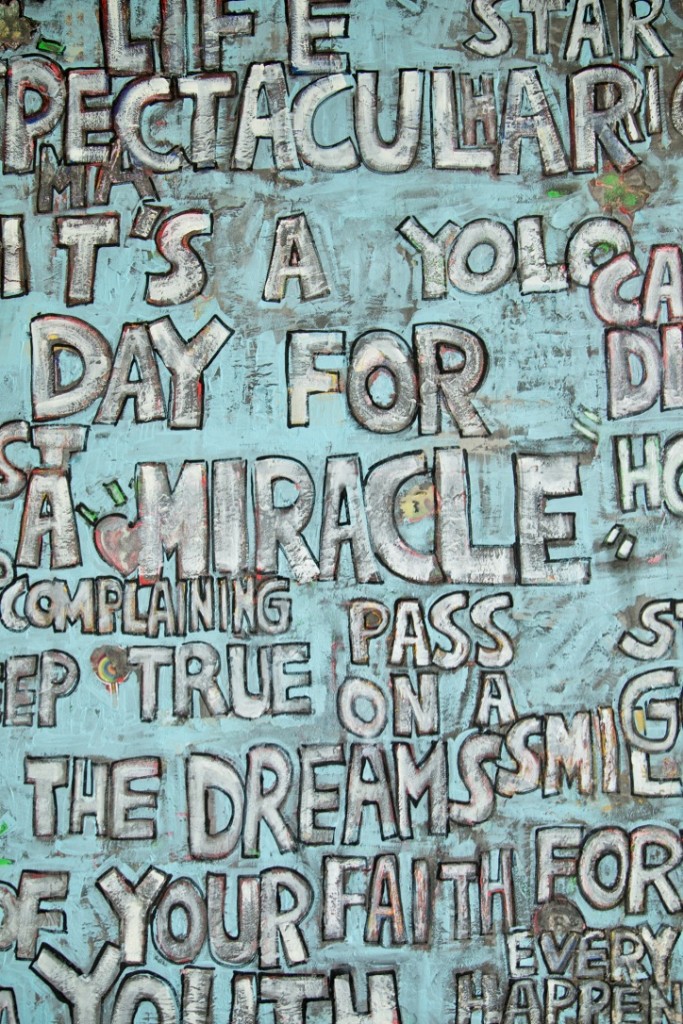 LIFE STAR
PECTACULAR
IT'S A YOLO
CA
DAY FOR
DI
ST
A MIRACLE
HO
COMPLAINING
PASS
ST
EEP TRUE
ON A
GO
SMILE
THE DREAMS
OF YOUR FAITH FOR
EVERY
YOUTH HAPPEN